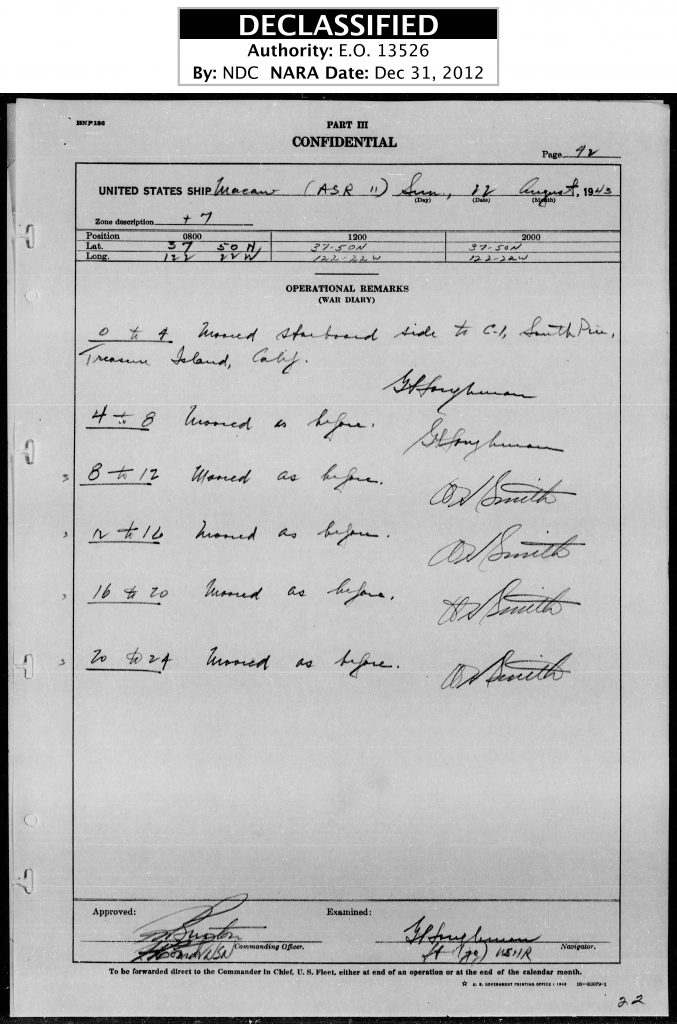 DECLASSIFIED
Authority: E.O. 13526
By: NDC NARA Date: Dec 31, 2012
BNP186
PART III
CONFIDENTIAL
Page 92
UNITED STATES SHIP Macaw (ASR 11) Sun, 22 August, 1943
(Day) (Date) (Month)
Zone description + 7
Position 0800 1200 2000
Lat. 37 50 N 37-50N 37-50N
Long. 122 22W 122-22W 122-22W
OPERATIONAL REMARKS
(WAR DIARY)
0 to 4 Moored starboard side to C-1, South Pier,
Treasure Island, Calif.
4 to 8 Moored as before.
8 to 12 Moored as before.
Smith
12 to 16 Moored as before.
Smith
16 to 20 Moored as before.
Smith
20 to 24 Moored as before.
Smith
Approved: Examined:
USN Commanding Officer. Lt (jg) USNR Navigator.
To be forwarded direct to the Commander in Chief, U. S. Fleet, either at end of an operation or at the end of the calendar month.
☆ U. S. GOVERNMENT PRINTING OFFICE : 1943 16—31079-1
22